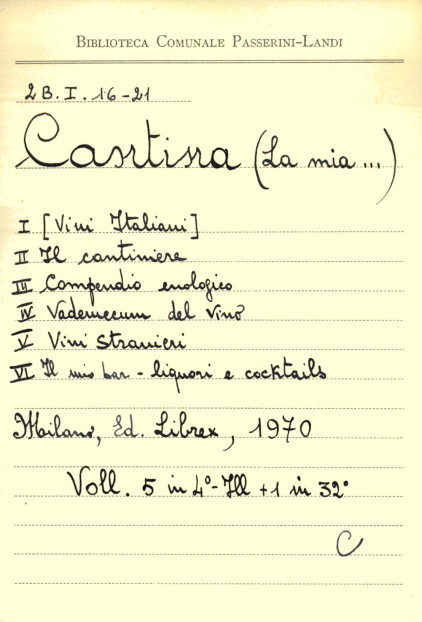 BIBLIOTECA COMUNALE PASSERINI-LANDI
2B.I.16-21
Cantina (La mia...)
I [Vini Italiani]
II Il cantiniere
III Compendio enologico
IV Vademecum del vino
V Vini stranieri
VI Il mio bar - liquori e cocktails
Milano, Ed. Librex, 1970
Voll. 5 in 4°-Ill +1 in 32°
C